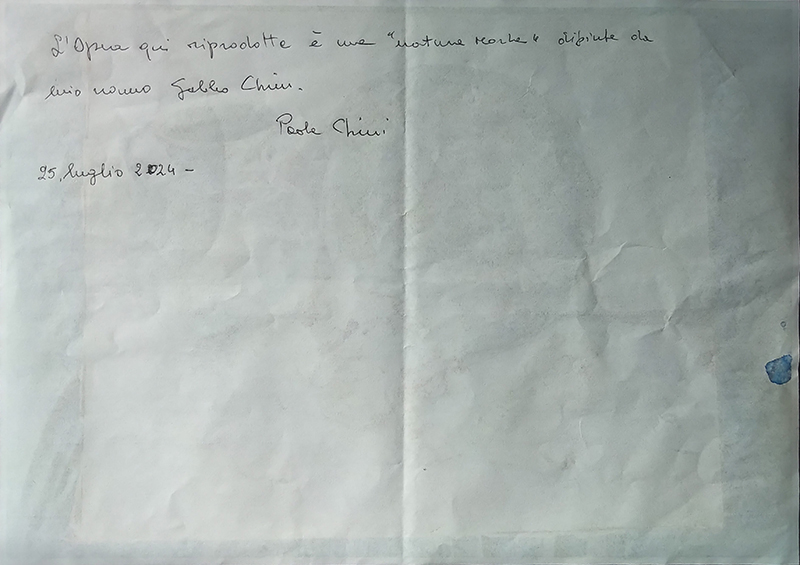 L'Opera qui riprodotta è una "natura morta" dipinta da
mio nonno Galileo Chini.
Paola Chini
25, luglio 2024 -